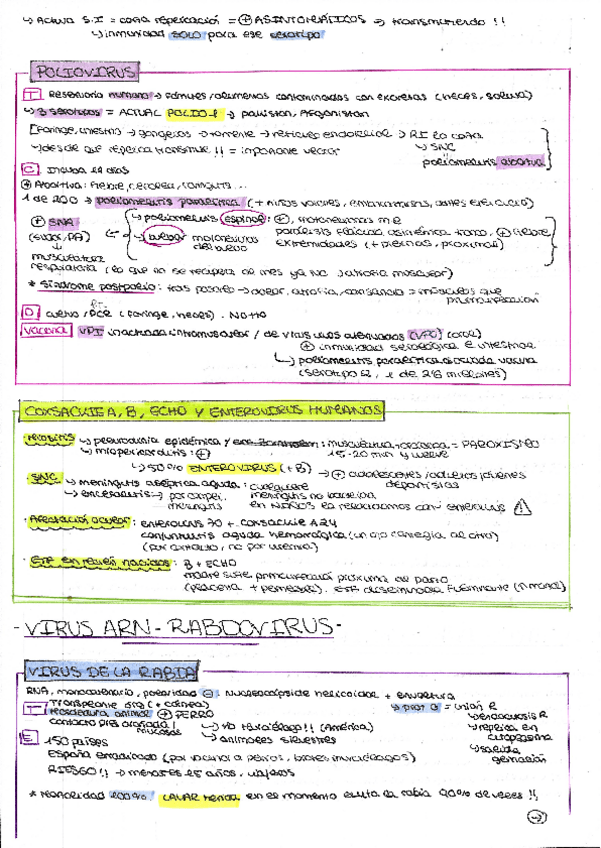 ↳ Activa S.I = corta repercusión = ⊕ ASINTOMÁTICOS → transmitiendo !!
↳ inmunidad SOLO para ese serotipo
POLIOVIRUS
T Reservorio humano → fómites/alimentos contaminados con excretas (heces, saliva)
↳ 3 serotipos = ACTUAL POLIO-1 → pakistan, Afganistan
[Faringe, intestino → ganglios → torrente → retículo endotelial → RI lo corta
↳ desde que replica transmite !! = importante vector
↳ SNC
poliomielitis abortiva
C Incuba 14 días
⊕ Abortiva: Fiebre, cefalea,
1 de 200 → poliomielitis paralítica (+ niños varones,
⊕ SNA
(sudor, PA)
↓
musculatura
respiratoria (lo que no se recupera al mes ya NO. ↓atrofia muscular)
↳ poliomielitis espinal: ⊕, motoneuronas m.e
parálisis fláccida asimétrica tronco, ⊕ fiebre
extremidades (+ piernas, proximal)
↳ bulbar motoneuronas
del bulbo
* Síndrome postpolio: tras parálisis → dolor, atrofia, cansancio = músculos que
D cultivo / PCR (faringe, heces). No tto
Vacuna VPI inactivada intramuscular / de virus vivos atenuados (VPO) (oral)
⊕ inmunidad serológica e intestinal
↳ poliomielitis paralítica asociada vacuna
COXSACKIE A, B, ECHO Y ENTEROVIRUS HUMANOS
↳ pleurodinia epidémica
musculatura = PAROXISMO
15-20 min y vuelve
↳ miopericarditis: ⊕
↳ 50% ENTEROVIRUS (+B) → ⊕ adolescentes/adultos jóvenes
deportistas
· SNC ↳ meningitis aséptica aguda: cualquier
meningitis no bacteriana
↳ encefalitis →
meningitis
en NIÑOS lo relacionamos con enterovirus ⚠
· Afectación ocular: enterovirus 70 + coxsackie A24
conjuntivitis aguda hemorrágica (un ojo contagia al otro)
(por contacto, no por
en recién nacidos: B + ECHO
madre sufre primoinfección próxima al parto
(placenta + perinatal). Enf diseminada fulminante (↑ mortal)
- VIRUS ARN - RABDOVIRUS -
VIRUS DE LA RABIA
RNA, monocatenario, polaridad ⊖: Nucleocápside helicoidal + envoltura
T Transplante org (+ córnea)
Mordedura animal → ⊕ PERRO
contacto piel arañada /
mucosas
↳ NO murciélago!! (América)
↳ animales silvestres
↳ prot G = unión R
↳ endocitosis R
↳ replica en
citoplasma
↳ salida
gemación
E 150 países
España erradicado (por vacuna a perros, brotes murciélagos)
RIESGO!! → menores 15 años, viajeros
* Mortalidad 100%. LAVAR herida en el momento evita la rabia 90% de veces !!